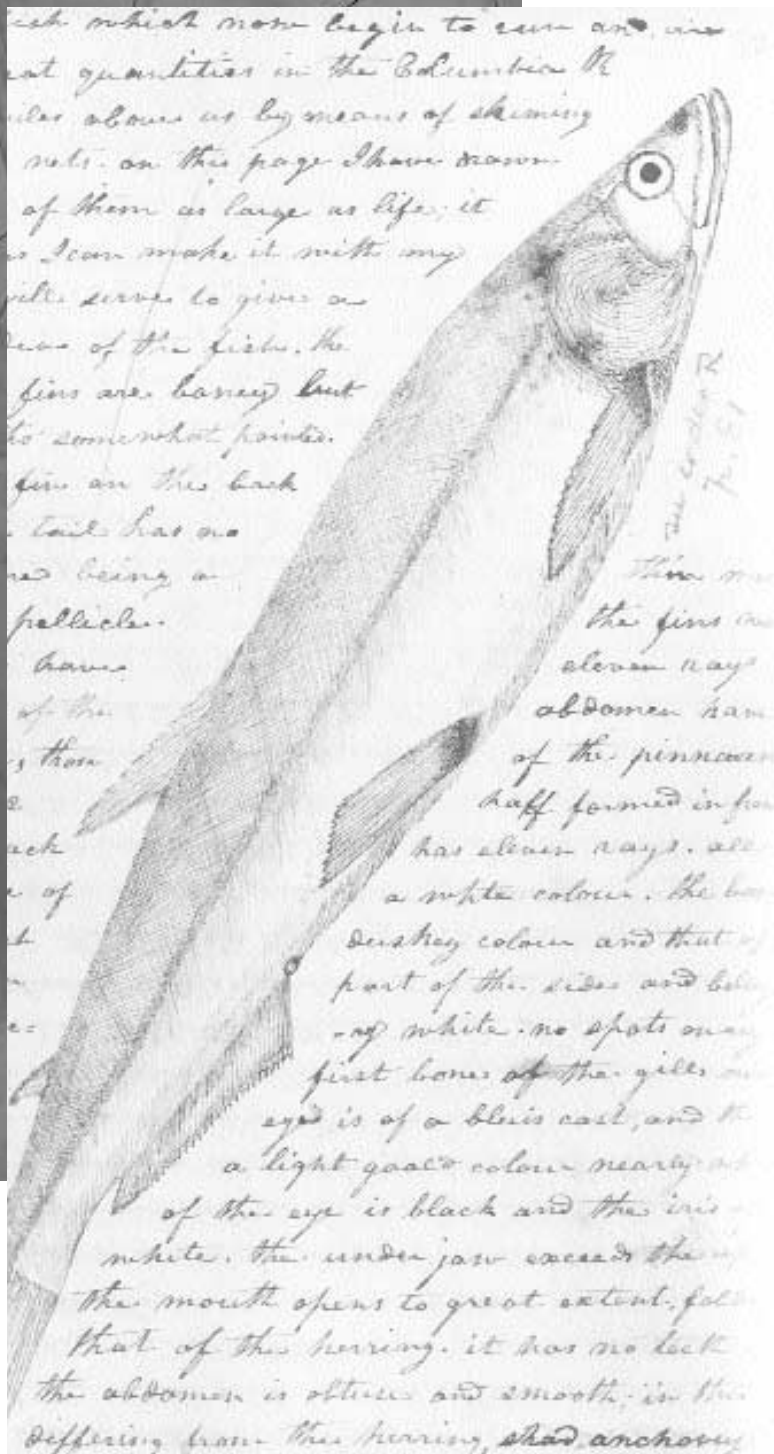 which now begin to run and
quantities in the Columbia R
above us by means of skiming
nets. on this page I have drawn
of them as large as life; it
I can make it with my
serve to give a
of the fish. the
fins are boney but
somewhat pointed.
fin on the back
tail has no
being a
pellicle.
have
of the
those
of
R
p. 81
thin
the fins
eleven rays
abdomen have
of the pinnaven
haff formed in
has eleven rays. all
a white colour. the
duskey colour and that of
part of the sides and
white. no spots on
first bones of the gills
eye is of a bluis cast, and the
a light goald colour nearly
of the eye is black and the iris
white. the under jaw exceeds the
the mouth opens to great extent,
that of the herring. it has no teeth
the abdomen is obtuse and smooth; in this
differing from the herring, shad, anchovey